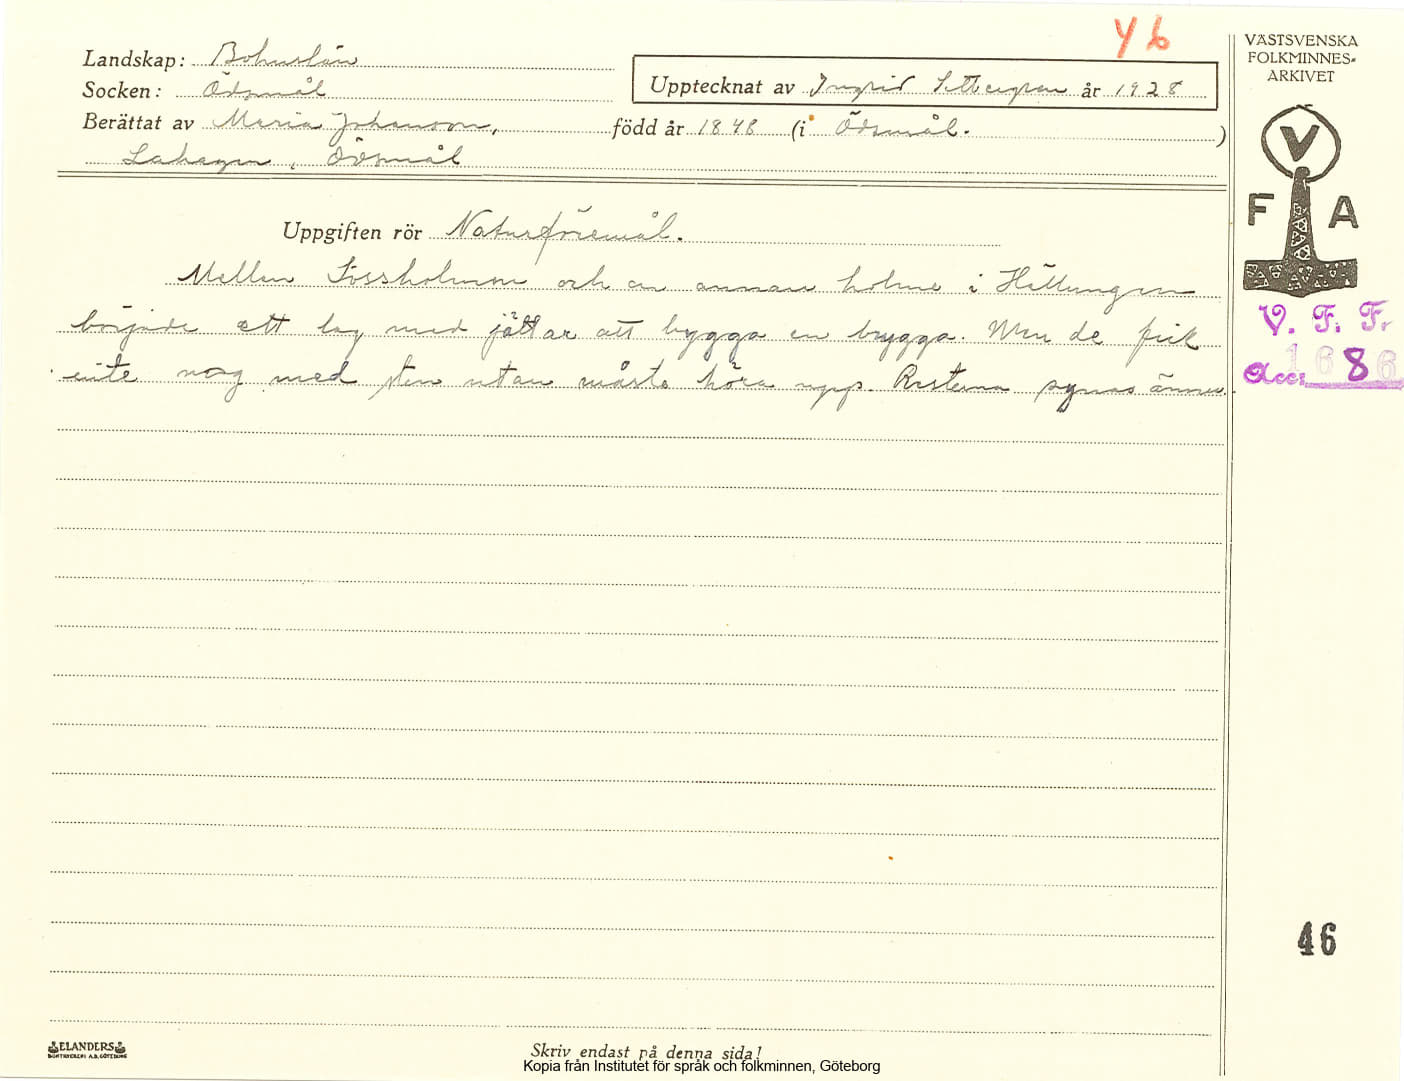 46
Landskap: Bohuslän
Socken: Ödsmål
Upptecknat av Ingrid Settergren år 1928
Berättat av Maria Johansson, född år 1848 (i Ödsmål.)
Ödsmål
Uppgiften rör Naturföremål.
Mellan och en annan holme i Hällungen
började ett lag med jättar att bygga en brygga. Men de fick
inte nog med sten utan måste höra upp. Resterna synas ännu.
VÄSTSVENSKA
FOLKMINNES-
ARKIVET
V
F A
V. F. F.
Acc: 1686
46
ELANDERS
BOKTRYCKERI A.B. GÖTEBORG
Skriv endast på denna sida!
Kopia från Institutet för språk och folkminnen, Göteborg